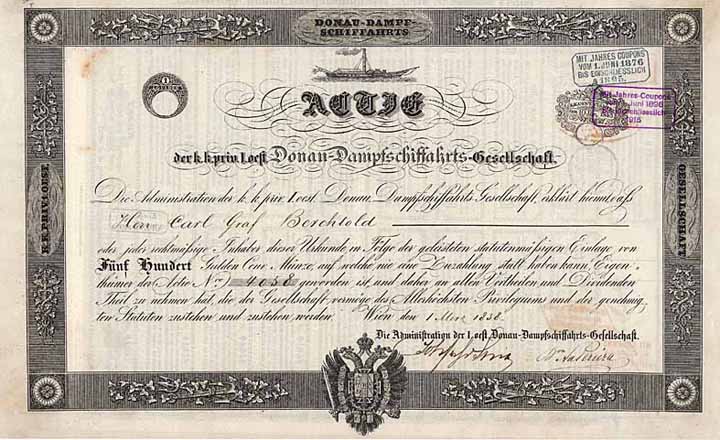 DONAU-DAMPF-
SCHIFFAHRTS
K.K.PRIV.I.OEST.
GESELLSCHAFT
MIT JAHRES COUPONS
VOM 1. JUNI 1876
BIS EINSCHLIESSLICH
1895.
Mit Jahres-Coupons
Juni 1896
bis einschliesslich
1915
ACTIE
der k.k.priv. I. oest. Donau-Dampfschiffahrts-Gesellschaft.
Die Administration der k. k. priv. I. oest. Donau-Dampfschiffahrts-Gesellschaft, erklärt hiemit, daß
Herr Carl Graf Berchtold
oder jeder rechtmäßige Inhaber dieser Urkunde, in Folge der geleisteten statutenmäßigen Einlage von
Fünf Hundert Gulden Conv. Münze, auf welche nie eine Zuzahlung statt haben kann, Eigen-
thümer der Actie No. 4058 geworden ist, und daher an allen Vortheilen und Dividenden
Theil zu nehmen hat, die der Gesellschaft, vermöge des Allerhöchsten Privilegiums und der genehmig-
ten Statuten zustehen und zustehen werden. Wien den 1 März 1838.
Die Administration der I. oest. Donau-Dampfschiffahrts-Gesellschaft.